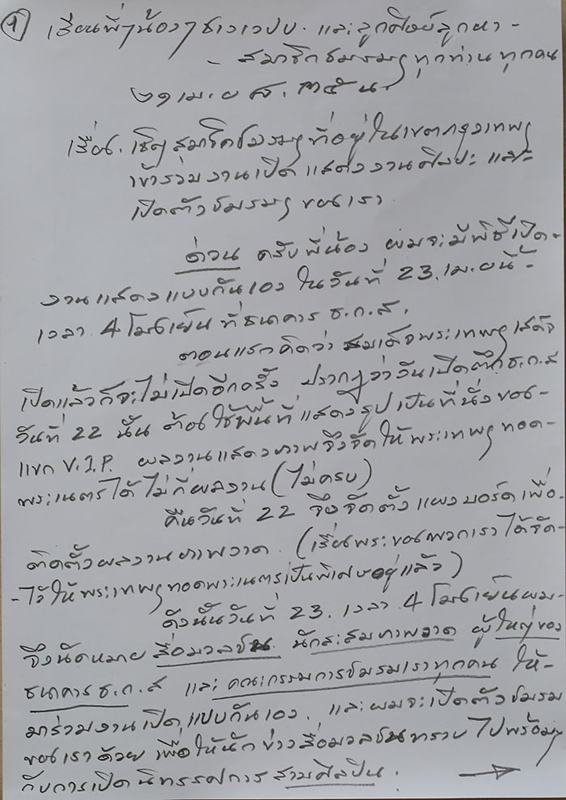 (1) เรียนพี่ๆน้องๆชาวเวปบ. และลูกศิษย์ลูกหา -
- สมาชิกชมรมฯ ทุกท่าน ทุกคน
๒๑ เม.ย
เรื่อง. เชิญ สมาชิกชมรมฯ ที่อยู่ในเขตกรุงเทพฯ
เข้าร่วมงานเปิด แสดงงานศิลปะ และ
เปิดตัวชมรมฯ ของเรา
ด่วน ครับพี่น้อง ผมจะมีพิธีเปิด-
งานแสดงแบบกันเอง ในวันที่ 23. เม.ย นี้
เวลา 4 โมงเย็น ที่ธนาคาร ธ.ก.ส.
ตอนแรกคิดว่า สมเด็จพระเทพฯ เสด็จ
เปิดแล้วก็จะไม่เปิดอีกครั้ง ปรากฏว่าวันเปิดตึกธ.ก.ส
วันที่ 22 นั้น ต้องใช้พื้นที่แสดงรูป เป็นที่นั่งของ-
แขก V.I.P. ผลงานแสดงภาพจึงจัดให้พระเทพฯ ทอด-
พระเนตรได้ไม่กี่ผลงาน (ไม่ครบ)
คืนวันที่ 22 จึงจัดตั้ง แผงบอร์ดเพื่อ-
ติดตั้งผลงานภาพวาด. (เรื่องพระของพวกเราได้จัด-
- ไว้ให้พระเทพฯทอดพระเนตรเป็นพิเศษอยู่แล้ว)
ดังนั้นวันที่ 23. เวลา 4 โมงเย็นผม-
จึงนัดหมาย สื่อมวลชน นักสะสมภาพวาด ผู้ใหญ่ของ
ธนาคาร ธ.ก.ส และ คณะกรรมการชมรมเราทุกคน ให้-
มาร่วมงานเปิดแบบกันเอง. และผมจะเปิดตัวชมรม
ของเราด้วย เพื่อให้นักข่าวสื่อมวลชนทราบ ไปพร้อมๆ
กับการเปิดนิทรรศการ สามศิลปิน. →